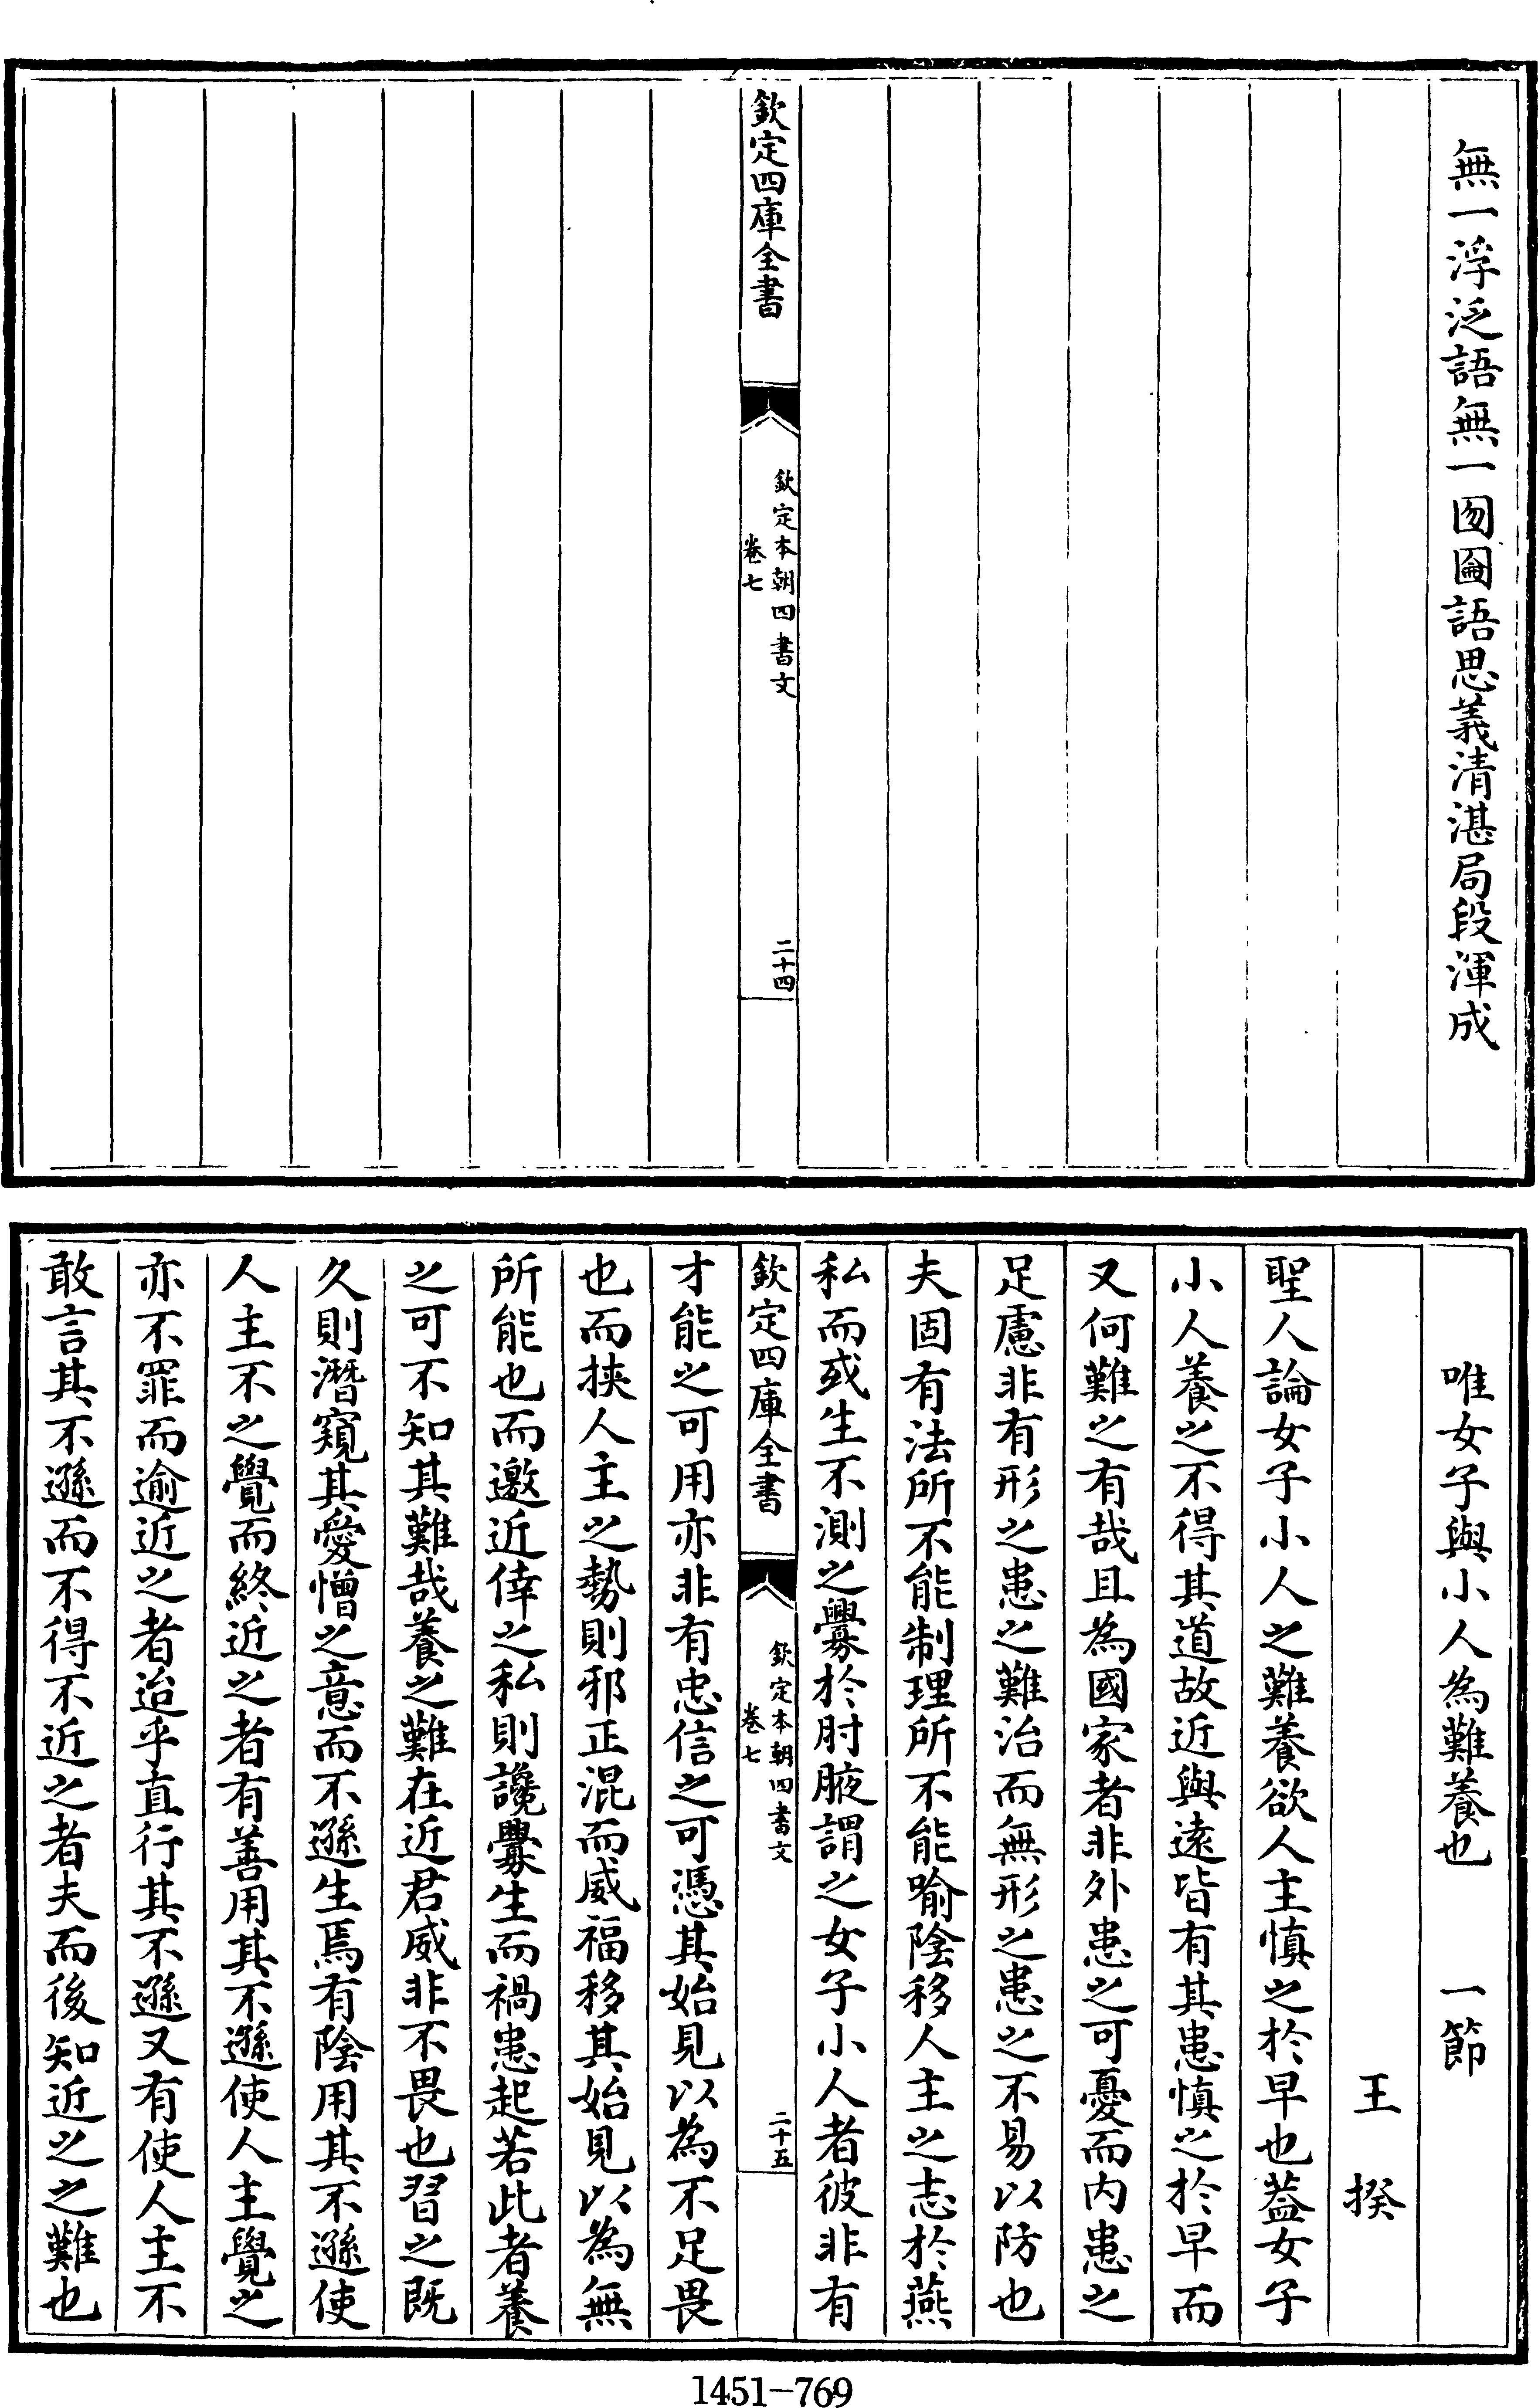 無一浮泛語無一囫圇語思義清湛局段渾成
欽定四庫全書
欽定本朝四書文
卷七
二十四
唯女子與小人為難養也　一節
王揆
聖人論女子小人之難養欲人主慎之於早也葢女子
小人養之不得其道故近與遠皆有其患慎之於早而
又何難之有哉且為國家者非外患之可憂而内患之
足慮非有形之患之難治而無形之患之不易以防也
夫固有法所不能制理所不能喻陰移人主之志於燕
私而或生不測之釁於肘腋謂之女子小人者彼非有
欽定四庫全書
欽定本朝四書文
卷七
二十五
才能之可用亦非有忠信之可憑其始見以為不足畏
也而挾人主之勢則邪正混而威福移其始見以為無
所能也而邀近倖之私則讒釁生而禍患起若此者養
之可不知其難哉養之難在近君威非不畏也習之既
久則潛窺其愛憎之意而不遜生焉有陰用其不遜使
人主不之覺而終近之者有善用其不遜使人主覺之
亦不罪而逾近之者迨乎直行其不遜又有使人主不
敢言其不遜而不得不近之者夫而後知近之之難也
1451-769